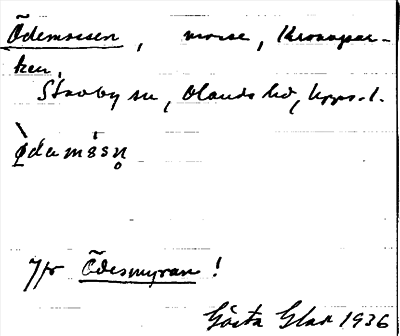 Ödemossen, mosse, Kronopar-
ken,
Stavby sn, Olands hd, Upps.l.
ø̀damåsn̥
Jfr Ödesmyran!
Gösta Glad 1936